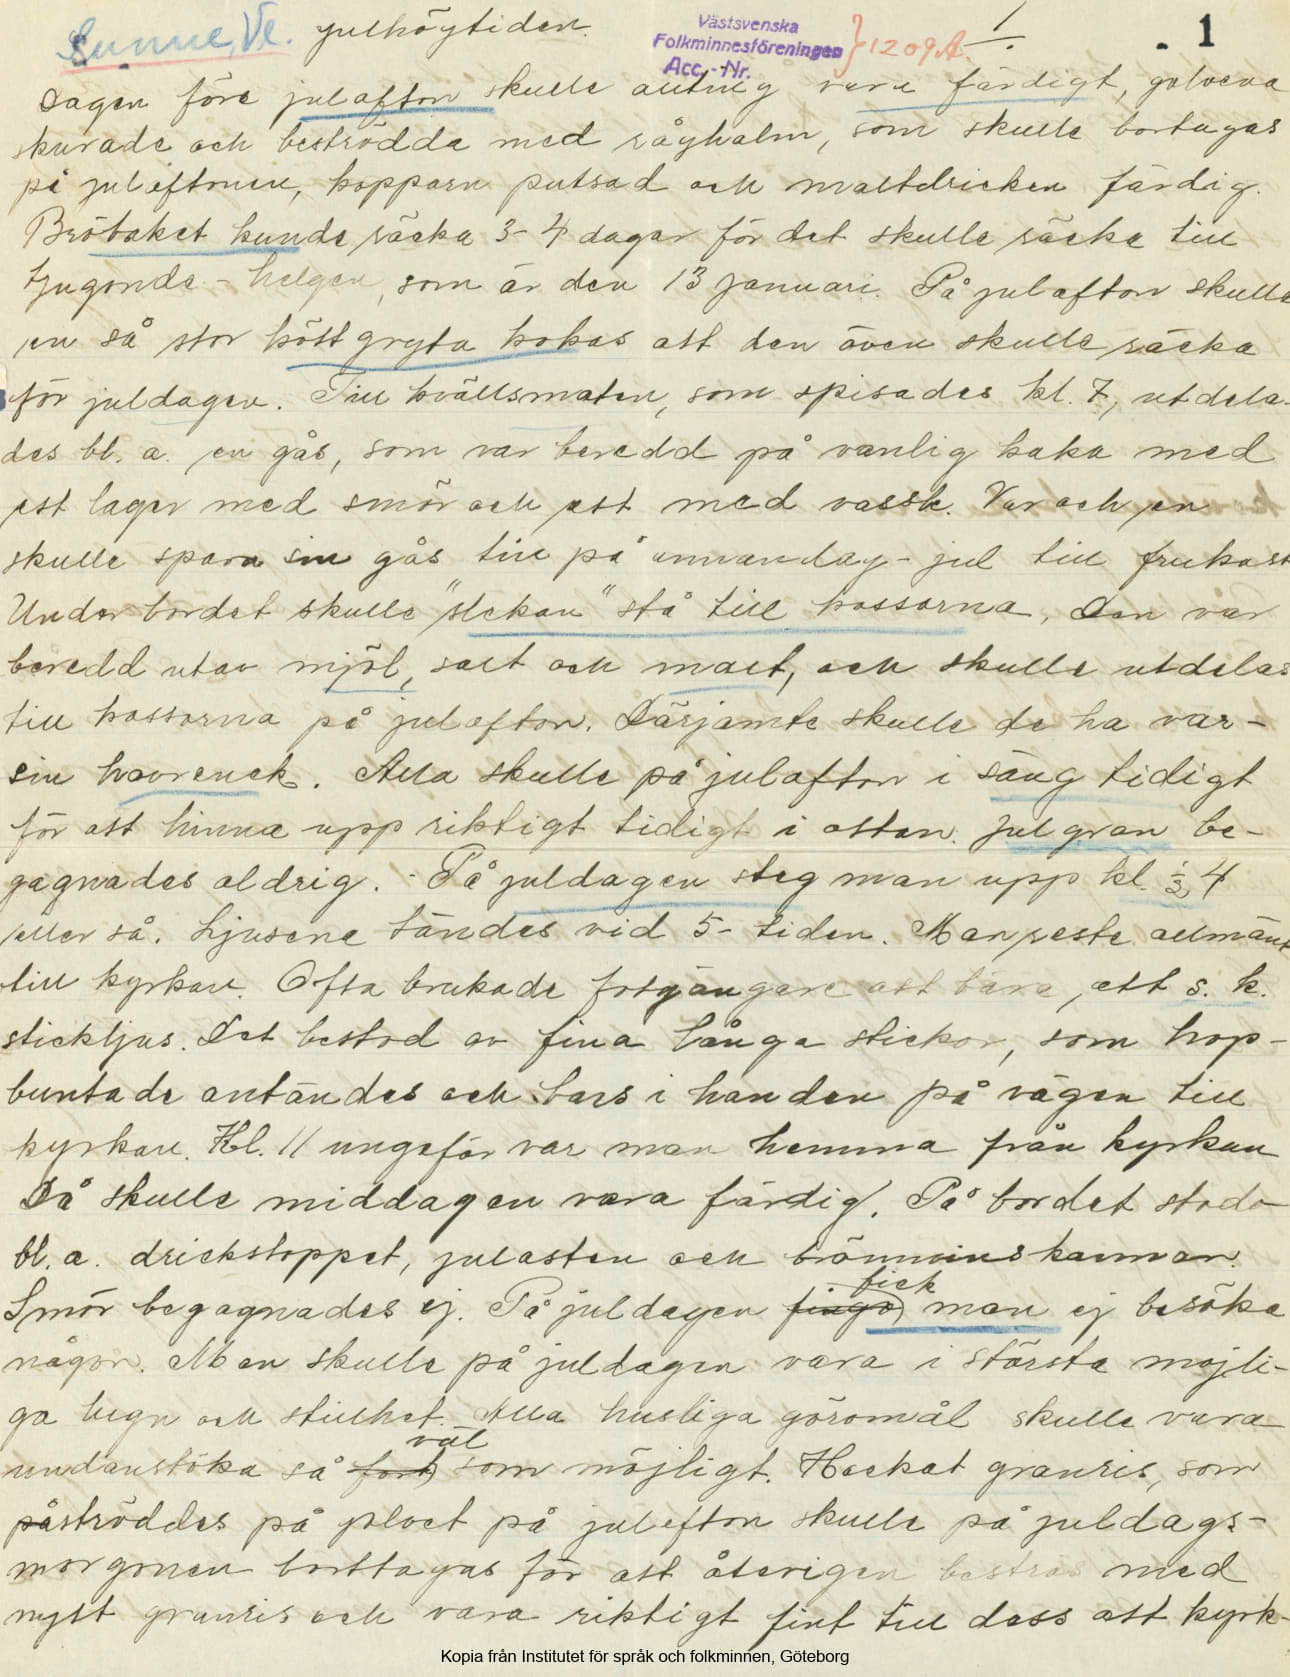 Sunne, Vl. Julhögtiden.
Västsvenska
Folkminnesföreningen
Acc.-Nr. } 1209A.
1.
. 1
Dagen före julafton skulle allting vara färdigt, golvena
skurade och beströdda med råghalm, som skulle bortagas
på julaftonen, kopparn putsad och maltdricken färdig.
Bröbaket kunde räcka 3-4 dagar för det skulle räcka till
tjugonde-helgen, som är den 13 januari. På julafton skulle
en så stor köttgryta kokas att den även skulle räcka
för juldagen. Till kvällsmaten, som spisades kl. 7, utdela-
des bl. a. en gås, som var beredd på vanlig kaka med
ett lager med smör och ett med vassk. Var och en
skulle spara sin gås till på annandag-jul till frukost
Under bordet skulle "slekan" stå till kossorna, Den var
beredd utav mjöl, salt och malt, och skulle utdelas
till kossorna på julafton. Därjämte skulle de ha var-
sin havrenek. Alla skulle på julafton i säng tidigt
för att hinna upp riktigt tidigt i ottan. Julgran be-
gagnades aldrig. - På juldagen steg man upp kl. ½ 4
eller så. Ljusene tändes vid 5-tiden. Man reste allmänt
till kyrkan. Ofta brukade fotgängare att bära, ett s. k.
stickljus. Det bestod av fina långa stickor, som hop-
buntade antändes och bars i handen på vägen till
kyrkan. Kl. 11 ungefär var man hemma från kyrkan
Då skulle middagen vara färdig. På bordet stodo
bl. a. drickstoppet, julosten och brännvinskannan.
Smör begagnades ej. På juldagen fingo fick man ej besöka
någon. Man skulle på juldagen vara i största möjli-
ga lugn och stillhet. Alla husliga göromål skulle vara
undanstöka så fort väl som möjligt. Hackat granris, som
påströddes på golvet på julafton skulle på juldags-
morgonen borttagas för att återigen beströs med
nytt granris och vara riktigt fint till dess att kyrk-
Kopia från Institutet för språk och folkminnen, Göteborg